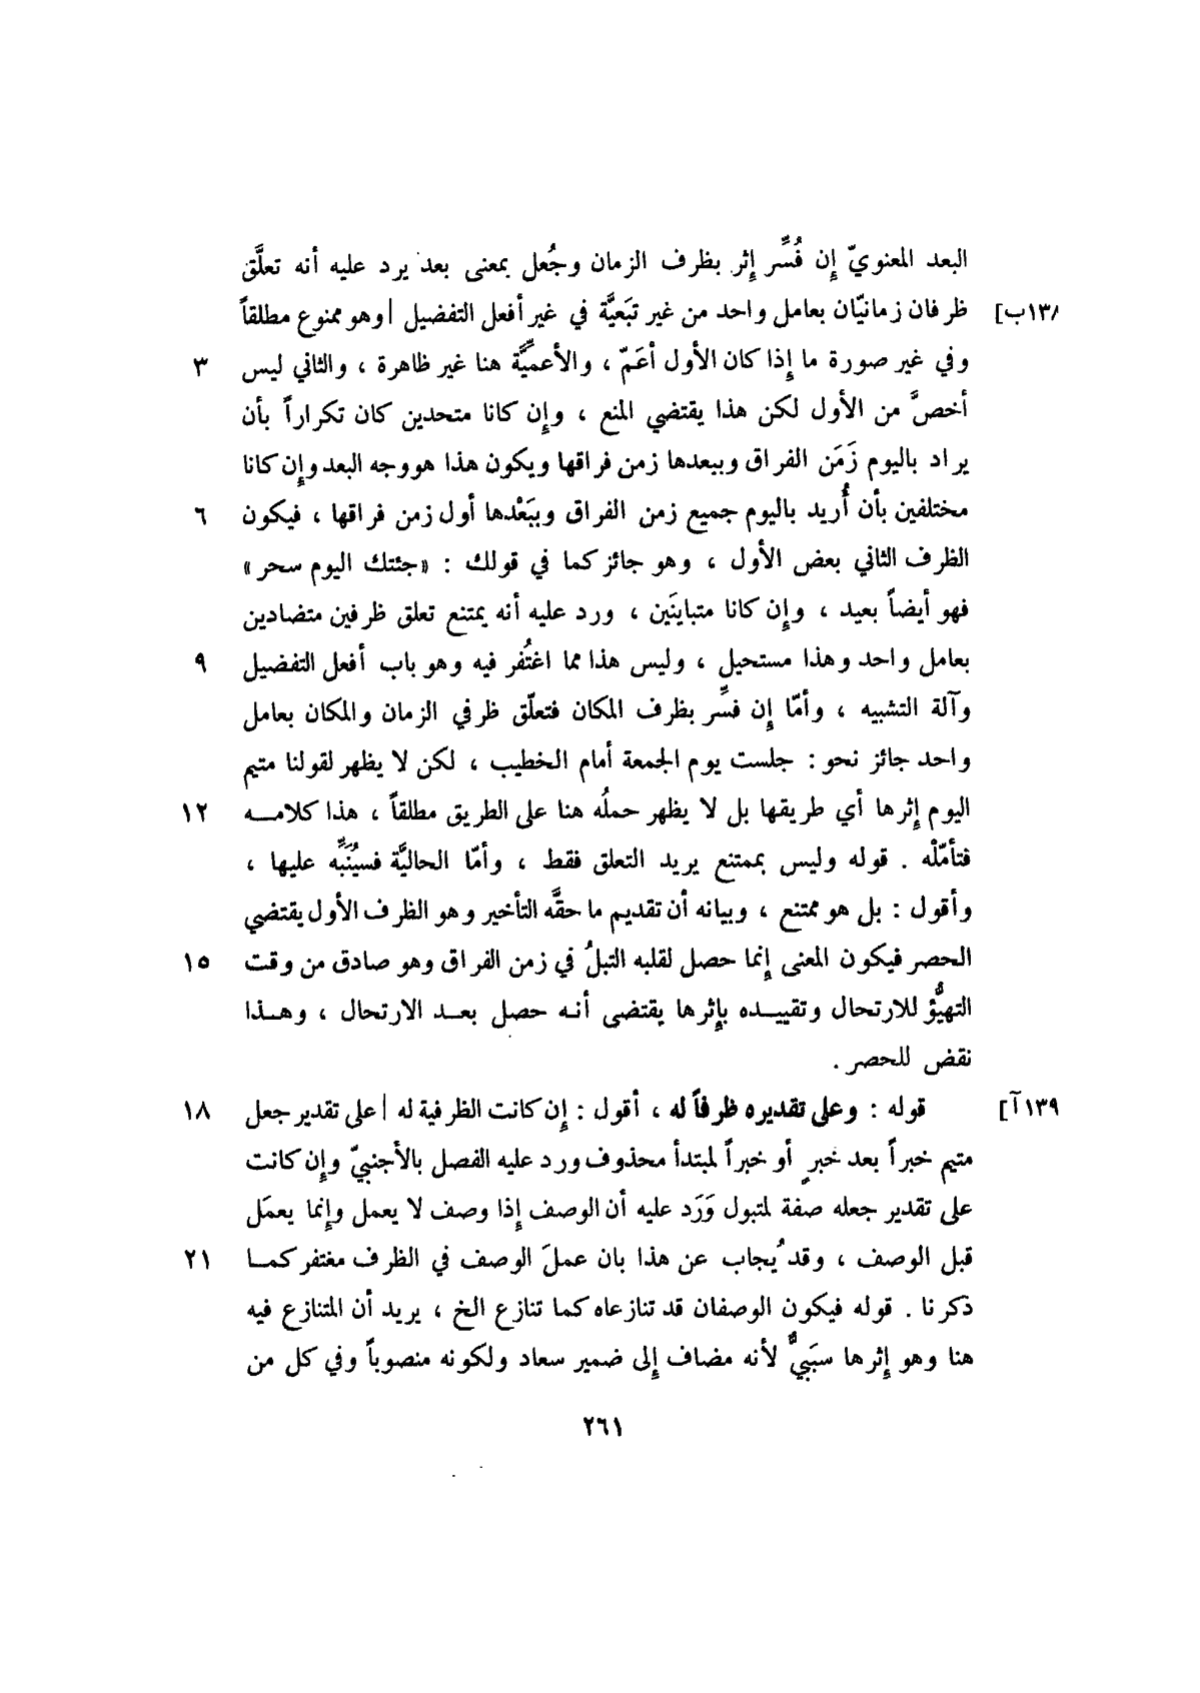 البعد المعنويّ إِن فُسِّر إِثر بظرف الزمان وجُعل بمعنى بعد يرد عليه أنه تعلَّق
١٣٨ب] ظرفان زمانيّان بعامل واحد من غير تبَعيَّة في غير أفعل التفضيل | وهو ممنوع مطلقاً
وفي غير صورة ما إِذا كان الأول أعَمّ ، والأعميَّة هنا غير ظاهرة ، والثاني ليس ٣
أخصَّ من الأول لكن هذا يقتضي المنع ، وإِن كانا متحدين كان تكراراً بأن
يراد باليوم زَمَن الفراق وببعدها زمن فراقها ويكون هذا هو وجه البعد وإِن كانا
مختلفين بأن أُريد باليوم جميع زمن الفراق وببَعْدها أول زمن فراقها ، فيكون ٦
الظرف الثاني بعض الأول ، وهو جائز كما في قولك : «جئتك اليوم سحر»
فهو أيضاً بعيد ، وإِن كانا متباينَين ، ورد عليه أنه يمتنع تعلق ظرفين متضادين
بعامل واحد وهذا مستحيل ، وليس هذا مما اغتُفر فيه وهو باب أفعل التفضيل ٩
وآلة التشبيه ، وأمّا إِن فسِّر بظرف المكان فتعلّق ظرفي الزمان والمكان بعامل
واحد جائز نحو : جلست يوم الجمعة أمام الخطيب ، لكن لا يظهر لقولنا متيم
اليوم إِثرها أي طريقها بل لا يظهر حملُه هنا على الطريق مطلقاً ، هذا كلامــه ١٢
فتأمّلْه . قوله وليس بممتنع يريد التعلق فقط ، وأمّا الحاليَّة فسيُنَبَّه عليها ،
وأقول : بل هو ممتنع ، وبيانه أن تقديم ما حقَّه التأخير وهو الظرف الأول يقتضي
الحصر فيكون المعنى إِنما حصل لقلبه التبلُ في زمن الفراق وهو صادق من وقت ١٥
التهيُّؤ للارتحال وتقييــده بإِثرها يقتضى أنـه حصل بعــد الارتحال ، وهــذا
نقض للحصر .
١٣٩آ] قوله : وعلى تقديره ظرفاً له ، أقول : إِن كانت الظرفية له | على تقدير جعل ١٨
متيم خبراً بعد خبرٍ أو خبراً لمبتدأ محذوف ورد عليه الفصل بالأجنبيّ وإِن كانت
على تقدير جعله صفة لمتبول وَرَد عليه أن الوصف إِذا وصف لا يعمل وإِنما يعمَل
قبل الوصف ، وقد يُجاب عن هذا بان عملَ الوصف في الظرف مغتفر كمــا ٢١
ذكرنا . قوله فيكون الوصفان قد تنازعاه كما تنازع الخ ، يريد أن المتنازع فيه
هنا وهو إِثرها سبَبيٌّ لأنه مضاف إِلى ضمير سعاد ولكونه منصوباً وفي كل من
٢٦١